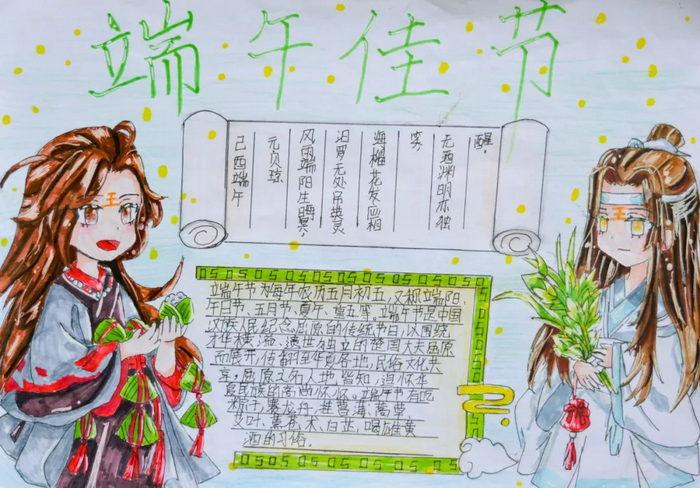 端午佳节
己酉端午
元贝琼
风雨端阳生晦冥,
汨罗无处吊英灵
海榴花发应相
笑,
无酒渊明亦独
醒.
端午节为每年农历五月初五,又称端阳、
午日节、五月节、夏午、重五等。端午节是中国
汉族人民纪念屈原的传统节日,以围绕
才华横溢、遗世独立的楚国大夫屈原
而展开,传播至华夏各地,民俗文化共
享,屈原之名人地皆知,追怀华
夏民族的高尚情怀。端午节有吃
粽子,赛龙舟,挂菖蒲、蒿草、
艾叶,薰苍术、白芷,喝雄黄
酒的习俗.
王
王